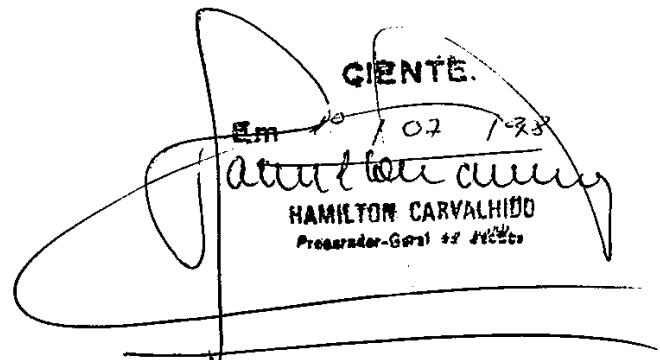 CIENTE.
Em 10 / 07 / 98
HAMILTON CARVALHIDO
Procurador-Geral de Justiça